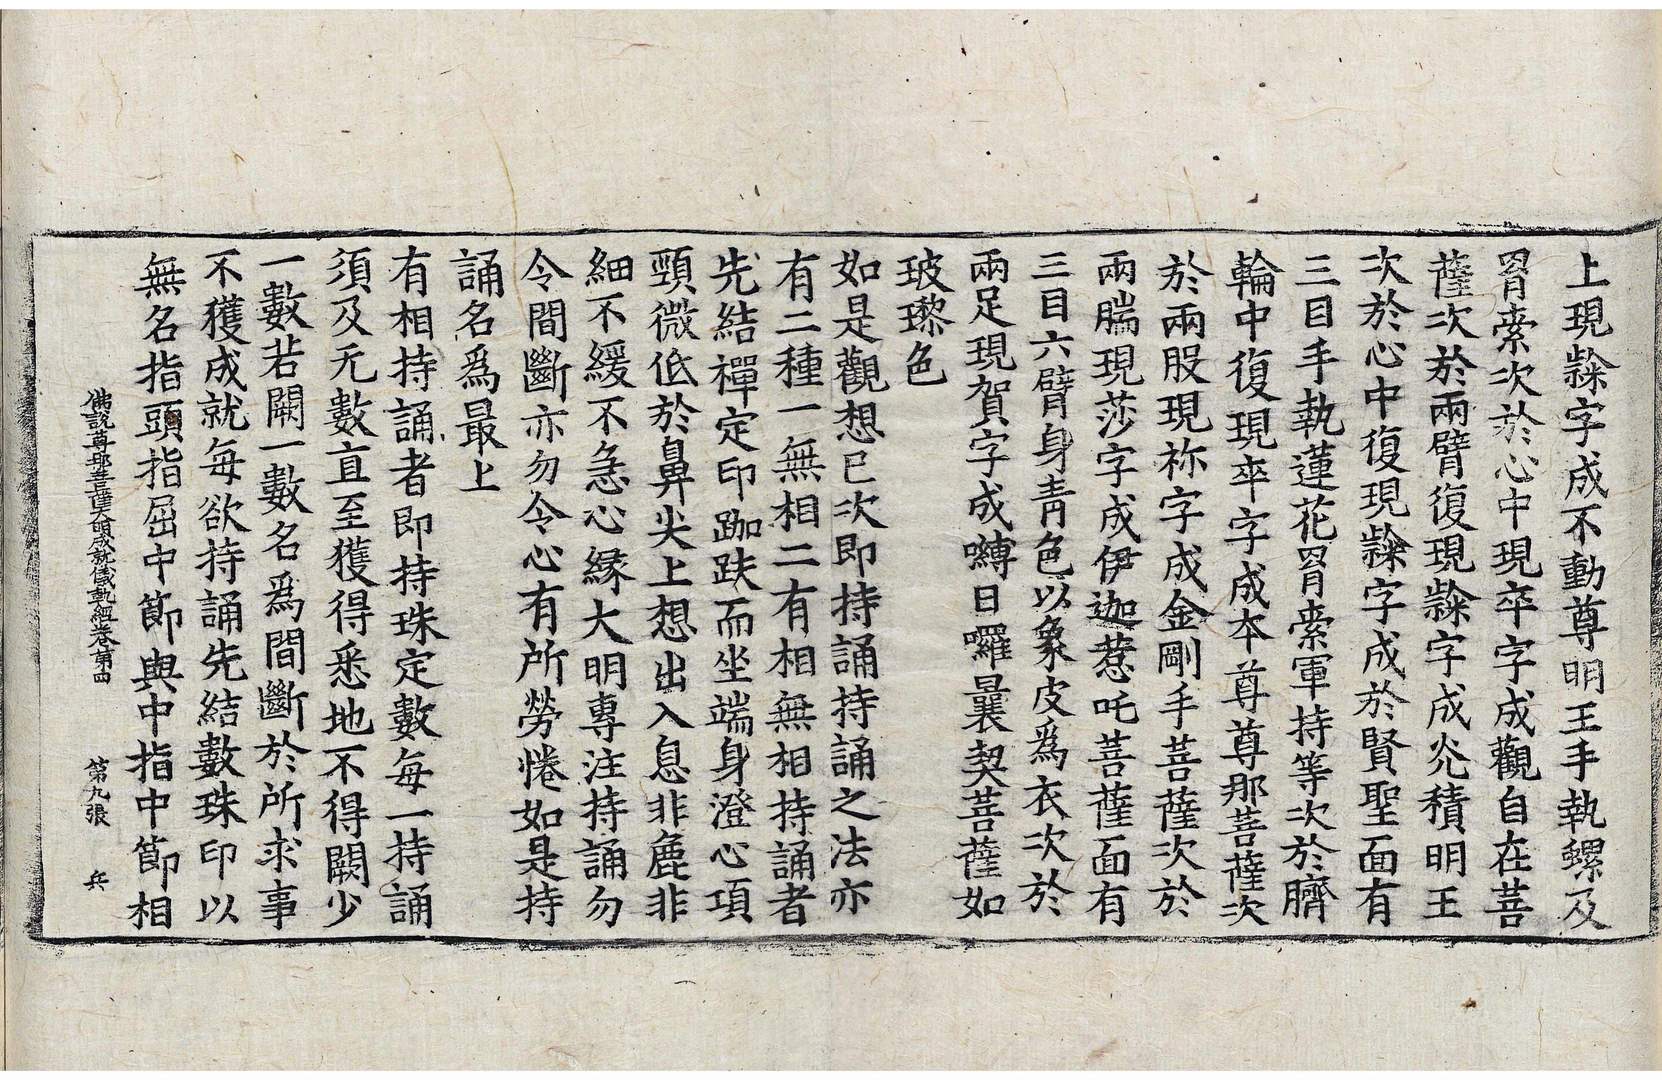 上現𪘨字成不動尊明王手執螺及
罥索次於心中現卒字成觀自在菩
薩次於兩臂復現𪘨字成焰積明王
次於心中復現𪘨字成於賢聖面有
三目手執蓮花罥索軍持等次於臍
輪中復現卒字成本尊尊那菩薩次
於兩股現祢字成金剛手菩薩次於
兩腨現莎字成伊迦惹吒菩薩面有
三目六臂身青色以象皮爲衣次於
兩足現賀字成嚩日囉曩契菩薩如
玻瓈色
如是觀想已次即持誦持誦之法亦
有二種一無相二有相無相持誦者
先結禪定印跏趺而坐端身澄心項
頸微低於鼻尖上想出入息非麁非
細不緩不急心縁大明專注持誦勿
令間斷亦勿令心有所勞惓如是持
誦名爲最上
有相持誦者即持珠定數每一持誦
須及元數直至獲得悉地不得闕少
一數若闕一數名爲間斷於所求事
不獲成就每欲持誦先結數珠印以
無名指頭指屈中節與中指中節相
佛說尊那菩薩大明成就儀軌經卷第四 第九張 兵